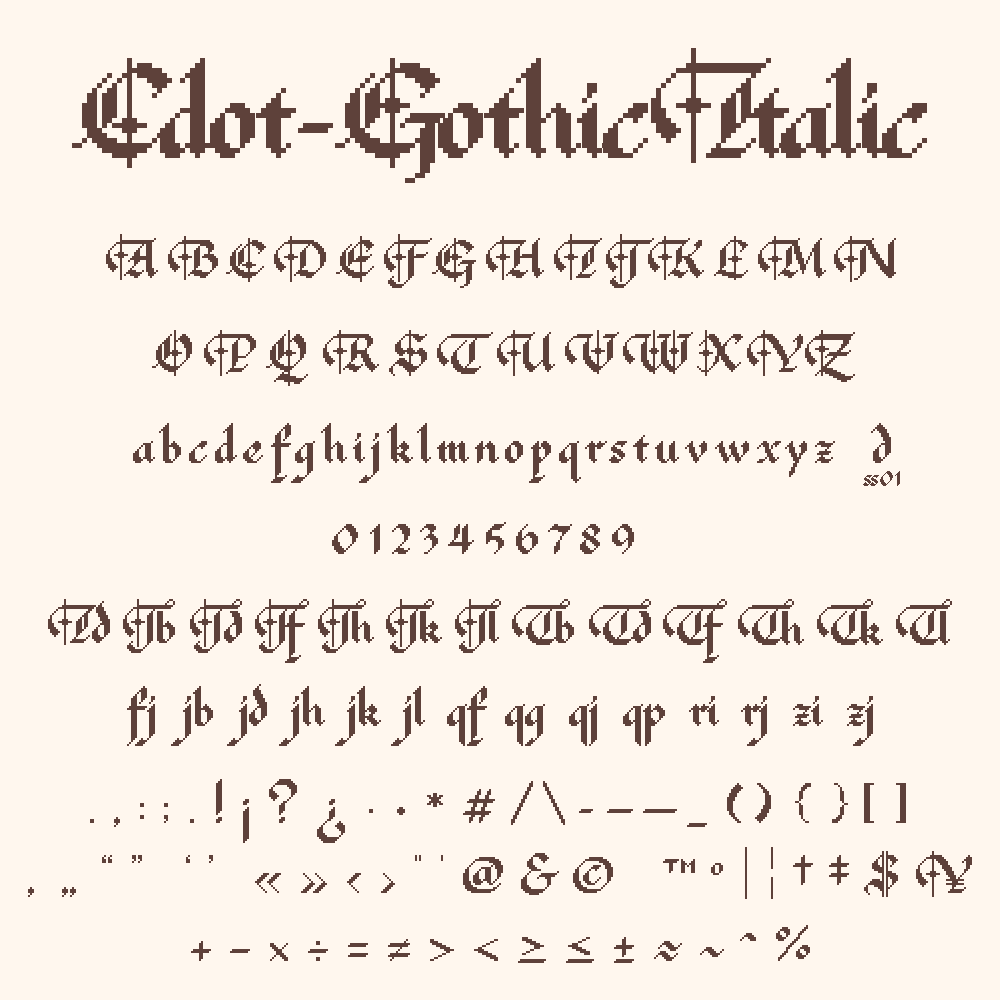 Cdot-Gothic Italic
A B C D E F G H I J K L M N
O P Q R S T U V W X Y Z
a b c d e f g h i j k l m n o p q r s t u v w x y z d
ss01
0 1 2 3 4 5 6 7 8 9
Id Jb Jd Jf Jh Jk Jl Tb Td Tf Th Tk Tl
fj jb jd jh jk jl qf qg qj qp ri rj zi zj
. , : ; . ! ¡ ? ¿ · • * # / \ - – — _ ( ) { } [ ]
‚ „ “ ” ‘ ’ « » ‹ › " ' @ & © ™ ° | ¦ † ‡ $ ¥
+ − × ÷ = ≠ > < ≥ ≤ ± ≈ ~ ^ %